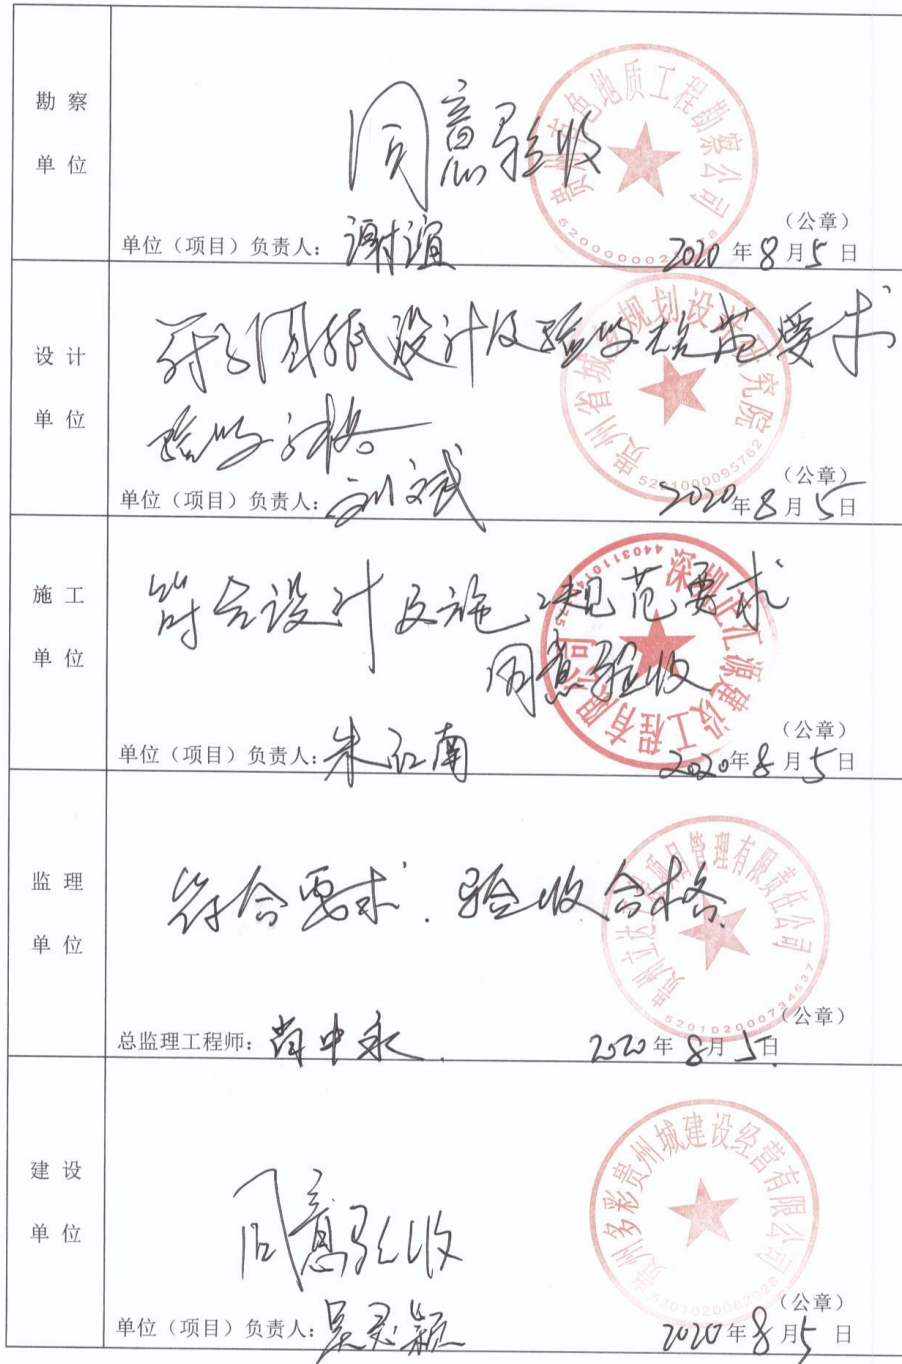 勘察
单位
同意验收
贵州有色地质工程勘察公司
(公章)
单位(项目)负责人:谢谊
2020年8月5日
设计
单位
符合图纸设计及验收规范要求
验收合格
贵州省城乡规划设计研究院
5201000095762
(公章)
单位(项目)负责人:刘斌
2020年8月5日
施工
单位
符合设计及施工规范要求
同意验收
深圳汇源建设工程有限公司
(公章)
单位(项目)负责人:朱江南
2020年8月5日
监理
单位
符合要求.验收合格
项目管理有限责任公司
520102000734637
(公章)
总监理工程师:肖中永
2020年8月5日
建设
单位
同意验收
贵州多彩贵州城建设经营有限公司
(公章)
单位(项目)负责人:
2020年8月5日